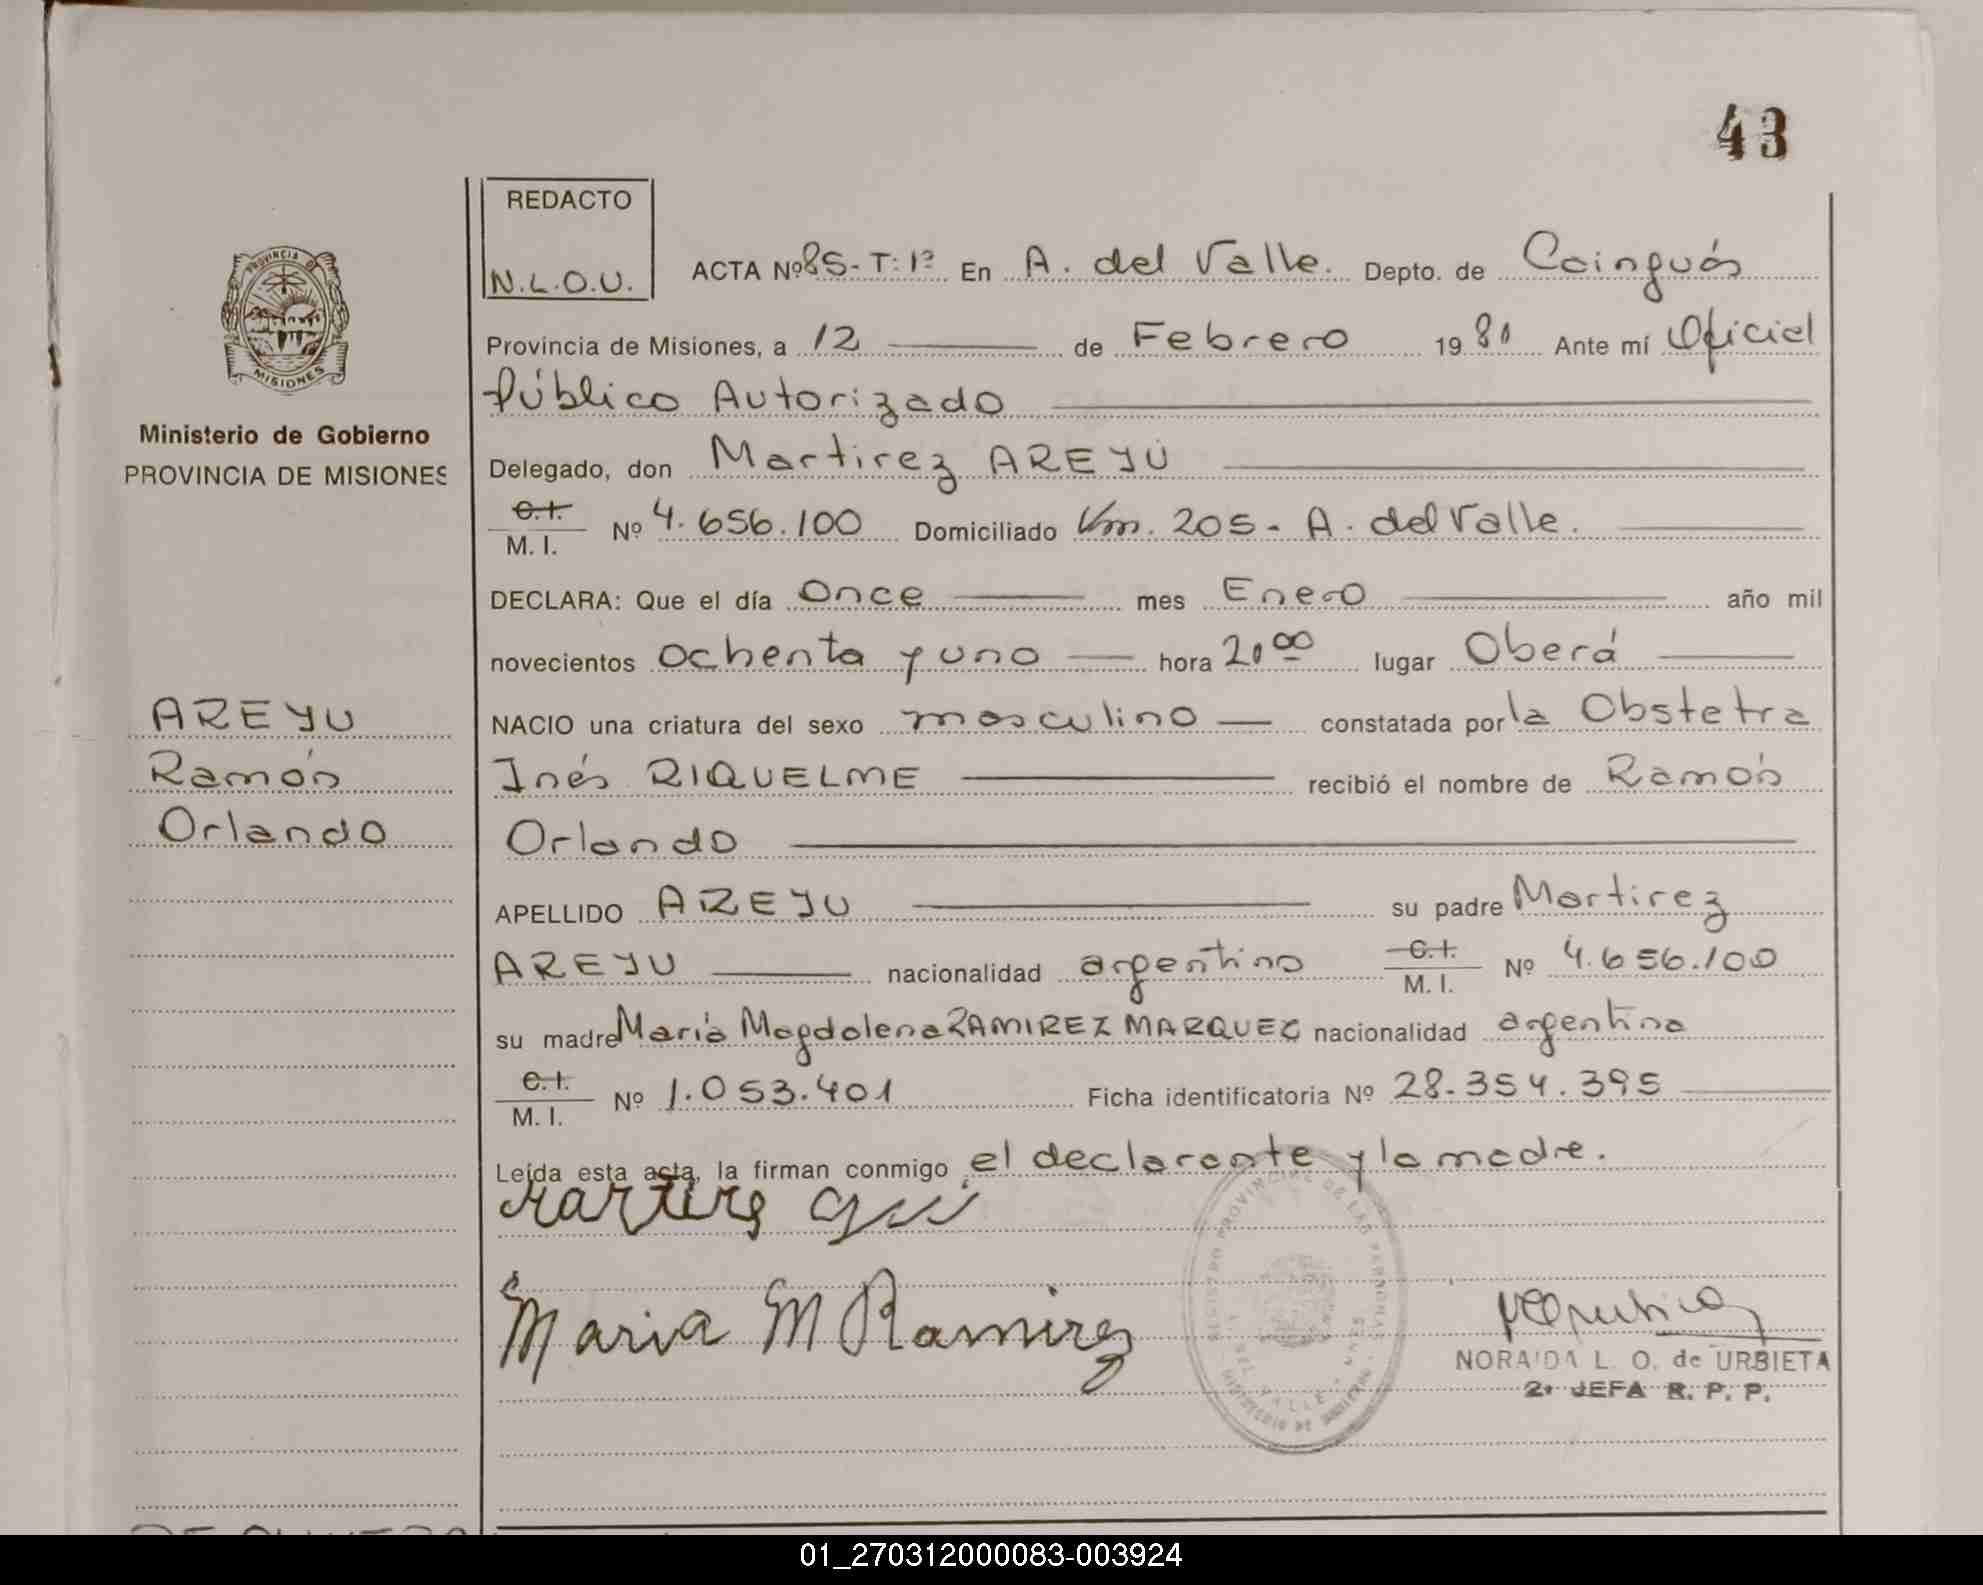 43
REDACTO
N.L.O.U.
ACTA Nº 85-T:1º En A. del Valle. Depto. de Cainguás
Provincia de Misiones, a 12 de Febrero 1981 Ante mí Oficial
Público Autorizado
Ministerio de Gobierno
PROVINCIA DE MISIONES
Delegado, don Martirez AREYÚ
C.I. M. I. Nº 4.656.100 Domiciliado Km. 205- A. del Valle.
DECLARA: Que el día Once mes Enero año mil
novecientos ochenta y uno hora 20 00 lugar Oberá
AREYU
Ramón
Orlando
NACIO una criatura del sexo masculino constatada por la Obstetra
Inés RIQUELME recibió el nombre de Ramón
Orlando
APELLIDO AREYU su padre Martirez
AREYU nacionalidad argentino C.I. M. I. Nº 4.656.100
su madre María Magdalena RAMIREZ MARQUEZ nacionalidad argentina
C.I. M. I. Nº 1.053.401 Ficha identificatoria Nº 28.354.395
Leída esta acta, la firman conmigo el declarante y la madre.
Maria M Ramirez
REGISTRO PROVINCIAL DE LAS PERSONAS
NORAIDA L. O. de URBIETA
2ª JEFA R. P. P.
01_270312000083-003924